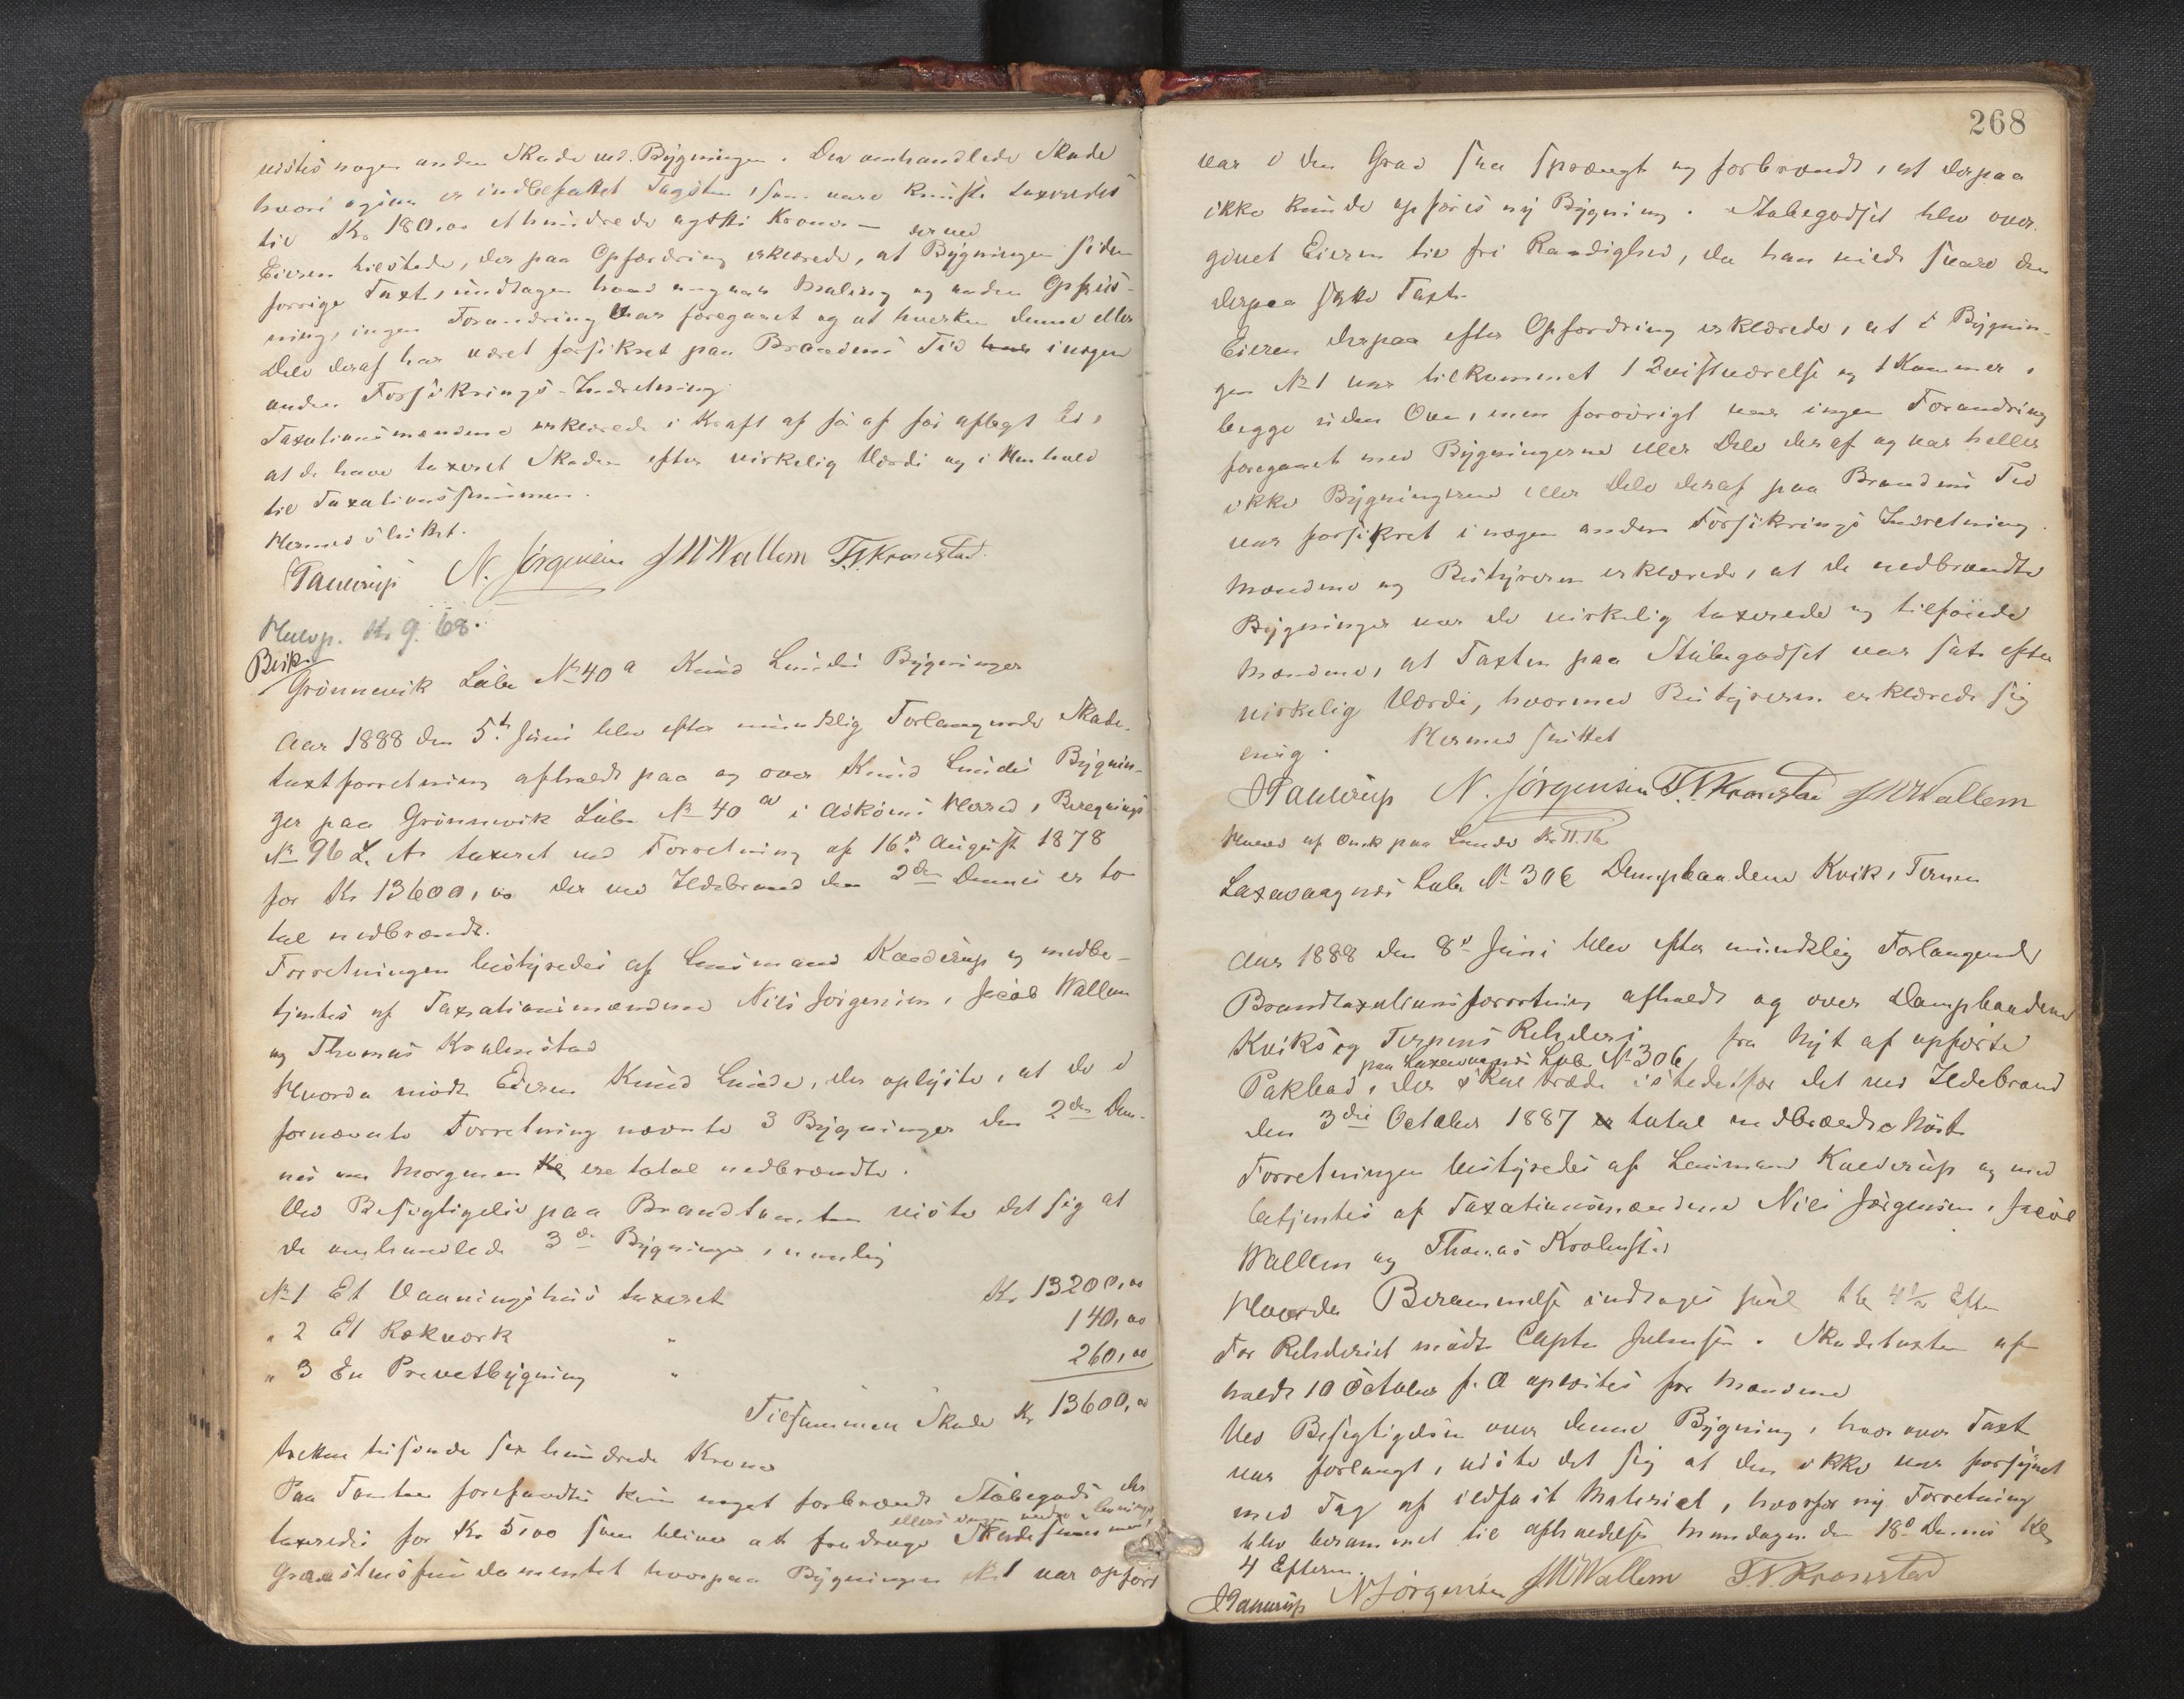 vistes nogen anden Skade ved Bygningen. Den omhandlede Skade
hvori ogsaa er indbefattet Tagsten, som vare knuste taxeredes
til Kr. 180,00 et hundrede og otti Kroner —
Eieren tilstede, der paa Opfordring erklærede, at Bygningen siden
forrige Taxt, undtagen hvad angaar Maling og anden Opfris-
ning, ingen Forandring har foregaaet og at hverken denne eller
Dele deraf har været forsikret paa Brandens Tid i nogen
anden Forsikrings-Indretning.
Taxationsmændene erklærede i Kraft af før aflagt Ed,
at de have taxeret Skaden efter virkelig Værdi og i Henhold
til Taxationssummen.
Hermed sluttet.
N. Jörgensen J M Wallem T. N. Kronstad
Kr. 9.68.
Besk.
Grönnevik Lübe No 40 a Knud Lunds Bygninger
Aar 1888 den 5te Juni blev efter mundtlig Forlangende Skade-
taxtforretning afholdt paa og over Knud Lunds Bygnin-
ger paa Grönnevik Lübe No 40 a i Askøens Herred, Beregnings
No 96 L. A. taxeret ved Forretning af 16de August 1878
for Kr 13600,00 der ved Ildebrand den 2den Dennes er to-
tal nedbrændt.
Forretningen bestyredes af Lensmand og medbe-
tjentes af Taxationsmændene Nils Jørgensen, Jacob Wallem
og Thomas Kronstad
Hvorda mødte Eieren Knud Lunde, der oplyste, at de i
fornævnte Forretning nævnte 3 Bygninger den 2den Den-
nes om Morgenen ere total nedbrændte.
Ved Besigtigelse paa Brandtomten viste det sig at
de omhandlede 3de Bygninger, nemlig
No 1 Et Vaaningshus taxeret Kr 13200,00
" 2 Et Rækværk " 140,00
" 3 En Prevetbygning " 260,00
Tilsammen Skade Kr 13600,00
tretten tusinde sex hundrede Kroner
Paa Tomten forefandtes kun noget forbrændt Støbegods der
taxeredes for Kr 5,00 som bliver at fradrage Skadesummen
Graastensfundamentet hvorpaa Bygningen No 1 var opført
268
var i den Grad saa sprængt og forbrændt, at derpaa
ikke kunde opføres ny Bygning. Støbegodset blev over-
givet Eieren til fri Raadighed, da han vilde svare den
derpaa satte Taxt.
Eieren derpaa efter Opfordring erklærede, at i Bygnin-
gen No 1 var tilkommet 1 Qvistværelse og 1 Kammer,
begge uden Ovn, men forøvrigt var ingen Forandring
foregaaet med Bygningerne eller Dele deraf og var heller
ikke Bygningerne eller Dele deraf paa Brandens Tid
var forsikret i nogen anden Forsikrings Indretning.
Mændene og Bestyreren erklærede, at de nedbrændte
Bygninger var de virkelig taxerede og tilføiede
Mændene, at Taxten paa Støbegodset var sat efter
virkelig Værdi, hvormed Bestyreren erklærede sig
enig. Hermed sluttet
N. Jörgensen T. N. Kronstad J M Wallem
Laxevaagnæs Lübe No 306 Dampbaadene Kvik, Ternen
Aar 1888 den 8de Juni blev efter mundtlig Forlangende
Brandtaxationsforretning afholdt og over Dampbaadene
Kviks og Ternens Rehderi fra Nyt af opførte
paa Laxevaagnæs Lübe No 306
Pakbod, der skal træde istedetfor det ved Ildebrand
den 3die October 1887 total nedbrændte
Forretningen bestyredes af Lensmand og med-
betjentes af Taxationsmændene Nils Jørgensen, Jacob
Wallem og Thomas Kronstad
Hvorda Berammelse indtoges Kl 4½ Efter
For Rehderiet mødte Capt. Skadetaxten af-
holdt 10 October f. A oplæstes for Mændene
Ved Besigtigelsen over denne Bygning, hvorover Taxt
var forlangt, viste det sig at den ikke var forsynet
med Tag af ildfast Materiel, hvorfor ny Forretning
blev berammet til afholdelse Mandagen den 18de Dennes Kl
4 Efterm.
N Jörgensen J M Wallem T. N. Kronstad